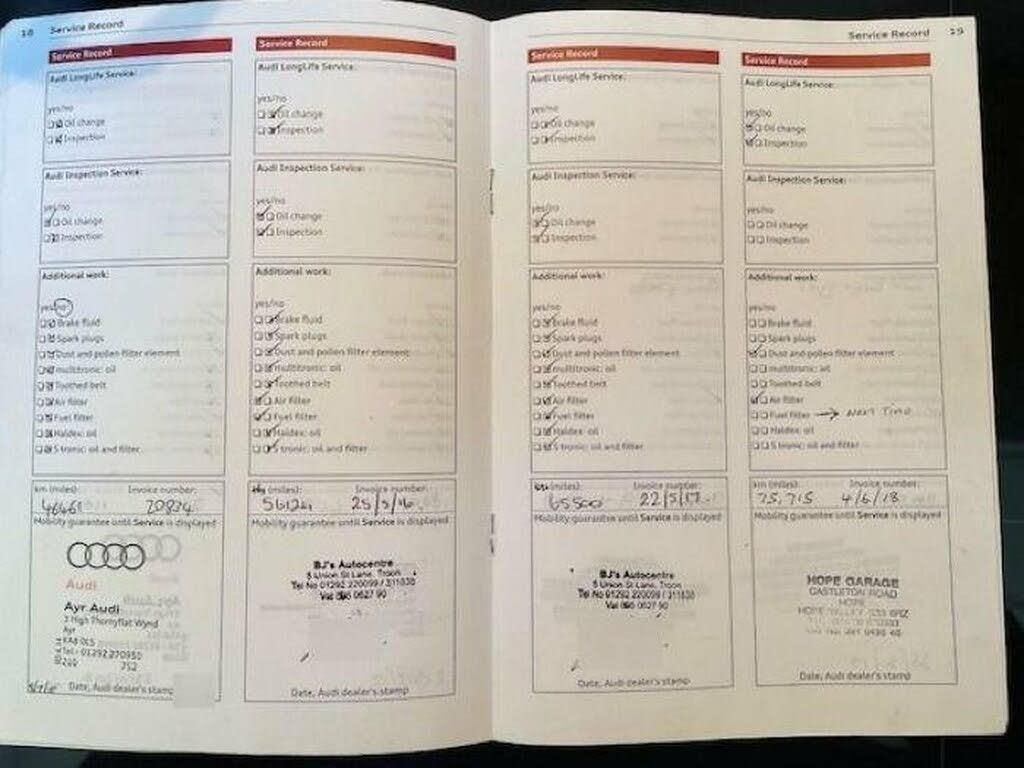 18 Service Record
Service Record
Audi LongLife Service:
yes/no
Oil change
Inspection
Audi Inspection Service:
yes/no
Oil change
Inspection
Additional work:
yes/no
Brake fluid
Spark plugs
Dust and pollen filter element
multitronic: oil
Toothed belt
Air filter
Fuel filter
Haldex: oil
S tronic: oil and filter
km (miles): Invoice number:
46461 70834
Mobility guarantee until Service is displayed
Audi
Ayr Audi
7 High Thornyflat Wynd
Ayr
KA8 0LS
Tel: 01292 270950
752
Date, Audi dealer's stamp
Service Record
Audi LongLife Service:
yes/no
Oil change
Inspection
Audi Inspection Service:
yes/no
Oil change
Inspection
Additional work:
yes/no
Brake fluid
Spark plugs
Dust and pollen filter element
multitronic: oil
Toothed belt
Air filter
Fuel filter
Haldex: oil
S tronic: oil and filter
(miles): Invoice number:
25/5/16
Mobility guarantee until Service is displayed
BJ's Autocentre
5 Union St Lane, Troon
Tel No 01292 220099 / 311838
Vat 0627 90
Date, Audi dealer's stamp
Service Record 19
Service Record
Audi LongLife Service:
yes/no
Oil change
Inspection
Audi Inspection Service:
yes/no
Oil change
Inspection
Additional work:
yes/no
Brake fluid
Spark plugs
Dust and pollen filter element
multitronic: oil
Toothed belt
Air filter
Fuel filter
Haldex: oil
S tronic: oil and filter
(miles): Invoice number:
65500 22/5/17.
Mobility guarantee until Service is displayed
BJ's Autocentre
5 Union St Lane, Troon
Tel No 01292 220099 / 311838
Vat 0627 90
Date, Audi dealer's stamp
Service Record
Audi LongLife Service:
yes/no
Oil change
Inspection
Audi Inspection Service:
yes/no
Oil change
Inspection
Additional work:
yes/no
Brake fluid
Spark plugs
Dust and pollen filter element
multitronic: oil
Toothed belt
Air filter
Fuel filter → NEXT TIME
Haldex: oil
S tronic: oil and filter
km (miles): Invoice number:
75,715 4/6/18
Mobility guarantee until Service is displayed
HOPE GARAGE
CASTLETON ROAD
HOPE
HOPE VALLEY S33 6RZ
Date, Audi dealer's stamp